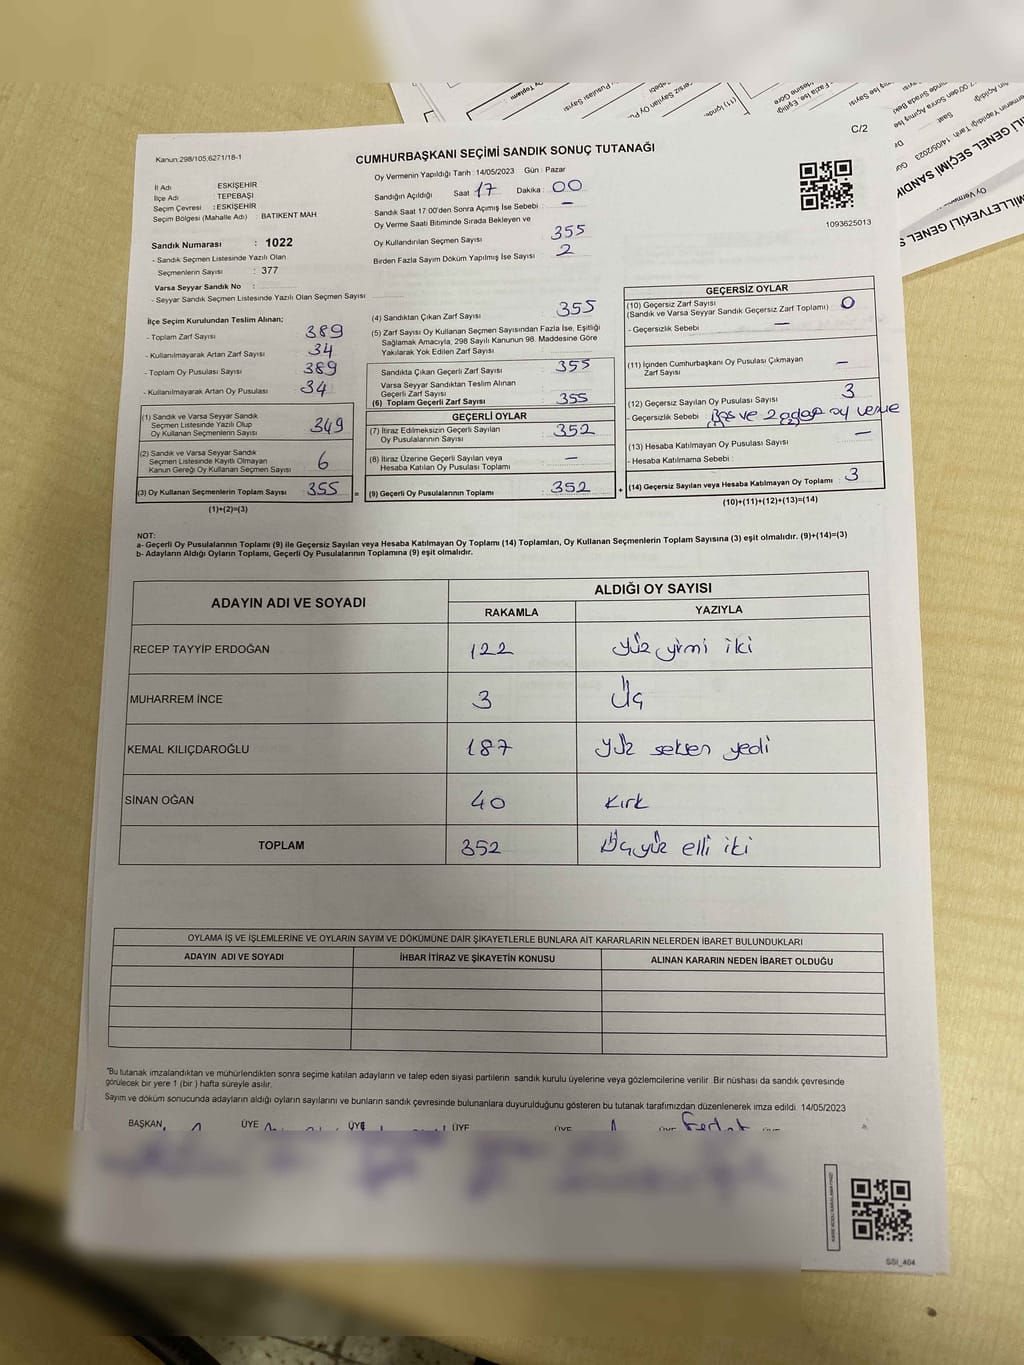 C/2
Kanun:298/105,6271/18-1
CUMHURBAŞKANI SEÇİMİ SANDIK SONUÇ TUTANAĞI
Oy Vermenin Yapıldığı Tarih : 14/05/2023 Gün : Pazar
İl Adı : ESKİŞEHİR
İlçe Adı : TEPEBAŞI
Seçim Çevresi : ESKİŞEHİR
Seçim Bölgesi (Mahalle Adı) : BATIKENT MAH
Sandık Numarası : 1022
- Sandık Seçmen Listesinde Yazılı Olan
Seçmenlerin Sayısı : 377
Varsa Seyyar Sandık No :
- Seyyar Sandık Seçmen Listesinde Yazılı Olan Seçmen Sayısı
Sandığın Açıldığı Saat 17 Dakika : 00
Sandık Saat 17:00'den Sonra Açımış İse Sebebi : -
Oy Verme Saati Bitiminde Sırada Bekleyen ve
Oy Kullandırılan Seçmen Sayısı 355
Birden Fazla Sayım Döküm Yapılmış İse Sayısı 2
1093625013
İlçe Seçim Kurulundan Teslim Alınan;
- Toplam Zarf Sayısı 389
- Kullanılmayarak Artan Zarf Sayısı 34
- Toplam Oy Pusulası Sayısı 389
- Kullanılmayarak Artan Oy Pusulası 34
(1) Sandık ve Varsa Seyyar Sandık
Seçmen Listesinde Yazılı Olup
Oy Kullanan Seçmenlerin Sayısı 349
(2) Sandık ve Varsa Seyyar Sandık
Seçmen Listesinde Kayıtlı Olmayan
Kanun Gereği Oy Kullanan Seçmen Sayısı 6
(3) Oy Kullanan Seçmenlerin Toplam Sayısı 355 =
(1)+(2)=(3)
(4) Sandıktan Çıkan Zarf Sayısı 355
(5) Zarf Sayısı Oy Kullanan Seçmen Sayısından Fazla İse, Eşitliği
Sağlamak Amacıyla, 298 Sayılı Kanunun 98. Maddesine Göre
Yakılarak Yok Edilen Zarf Sayısı
Sandıkta Çıkan Geçerli Zarf Sayısı 355
Varsa Seyyar Sandıktan Teslim Alınan
Geçerli Zarf Sayısı
(6) Toplam Geçerli Zarf Sayısı 355
GEÇERLİ OYLAR
(7) İtiraz Edilmeksizin Geçerli Sayılan
Oy Pusulalarının Sayısı : 352
(8) İtiraz Üzerine Geçerli Sayılan veya
Hesaba Katılan Oy Pusulası Toplamı -
(9) Geçerli Oy Pusulalarının Toplamı : 352 +
GEÇERSİZ OYLAR
(10) Geçersiz Zarf Sayısı 0
(Sandık ve Varsa Seyyar Sandık Geçersiz Zarf Toplamı)
- Geçersizlik Sebebi : -
(11) İçinden Cumhurbaşkanı Oy Pusulası Çıkmayan
Zarf Sayısı -
(12) Geçersiz Sayılan Oy Pusulası Sayısı 3
- Geçersizlik Sebebi : Boş ve 2 oy
(13) Hesaba Katılmayan Oy Pusulası Sayısı -
- Hesaba Katılmama Sebebi :
(14) Geçersiz Sayılan veya Hesaba Katılmayan Oy Toplamı 3
(10)+(11)+(12)+(13)=(14)
NOT:
a- Geçerli Oy Pusulalarının Toplamı (9) ile Geçersiz Sayılan veya Hesaba Katılmayan Oy Toplamı (14) Toplamları, Oy Kullanan Seçmenlerin Toplam Sayısına (3) eşit olmalıdır. (9)+(14)=(3)
b- Adayların Aldığı Oyların Toplamı, Geçerli Oy Pusulalarının Toplamına (9) eşit olmalıdır.
ADAYIN ADI VE SOYADI ALDIĞI OY SAYISI
RAKAMLA YAZIYLA
RECEP TAYYİP ERDOĞAN 122 yüz yirmi iki
MUHARREM İNCE 3 Üç
KEMAL KILIÇDAROĞLU 187 yüz seksen yedi
SİNAN OĞAN 40 Kırk
TOPLAM 352 Üçyüz elli iki
OYLAMA İŞ VE İŞLEMLERİNE VE OYLARIN SAYIM VE DÖKÜMÜNE DAİR ŞİKAYETLERLE BUNLARA AİT KARARLARIN NELERDEN İBARET BULUNDUKLARI
ADAYIN ADI VE SOYADI İHBAR İTİRAZ VE ŞİKAYETİN KONUSU ALINAN KARARIN NEDEN İBARET OLDUĞU
"Bu tutanak imzalandıktan ve mühürlendikten sonra seçime katılan adayların ve talep eden siyasi partilerin sandık kurulu üyelerine veya gözlemcilerine verilir .Bir nüshası da sandık çevresinde
görülecek bir yere 1 (bir ) hafta süreyle asılır.
Sayım ve döküm sonucunda adayların aldığı oyların sayılarını ve bunların sandık çevresinde bulunanlara duyurulduğunu gösteren bu tutanak tarafımızdan düzenlenerek imza edildi 14/05/2023
BAŞKAN, ÜYE ÜYE ÜYE ÜYE ÜYE
SSI_404